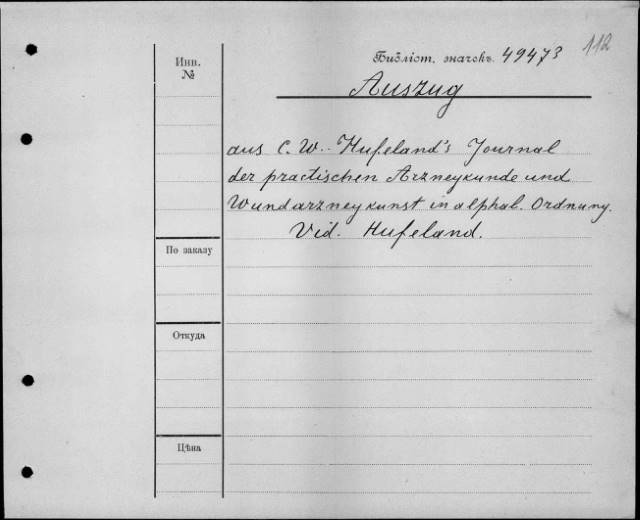 112
Инв.
№
Библіот. значокъ 49473
Auszug
aus C. W. Hufeland's Journal
der practischen Arzneykunde und
Wundarzneykunst in alphab. Ordnung.
Vid. Hufeland.
По заказу
Откуда
Цѣна